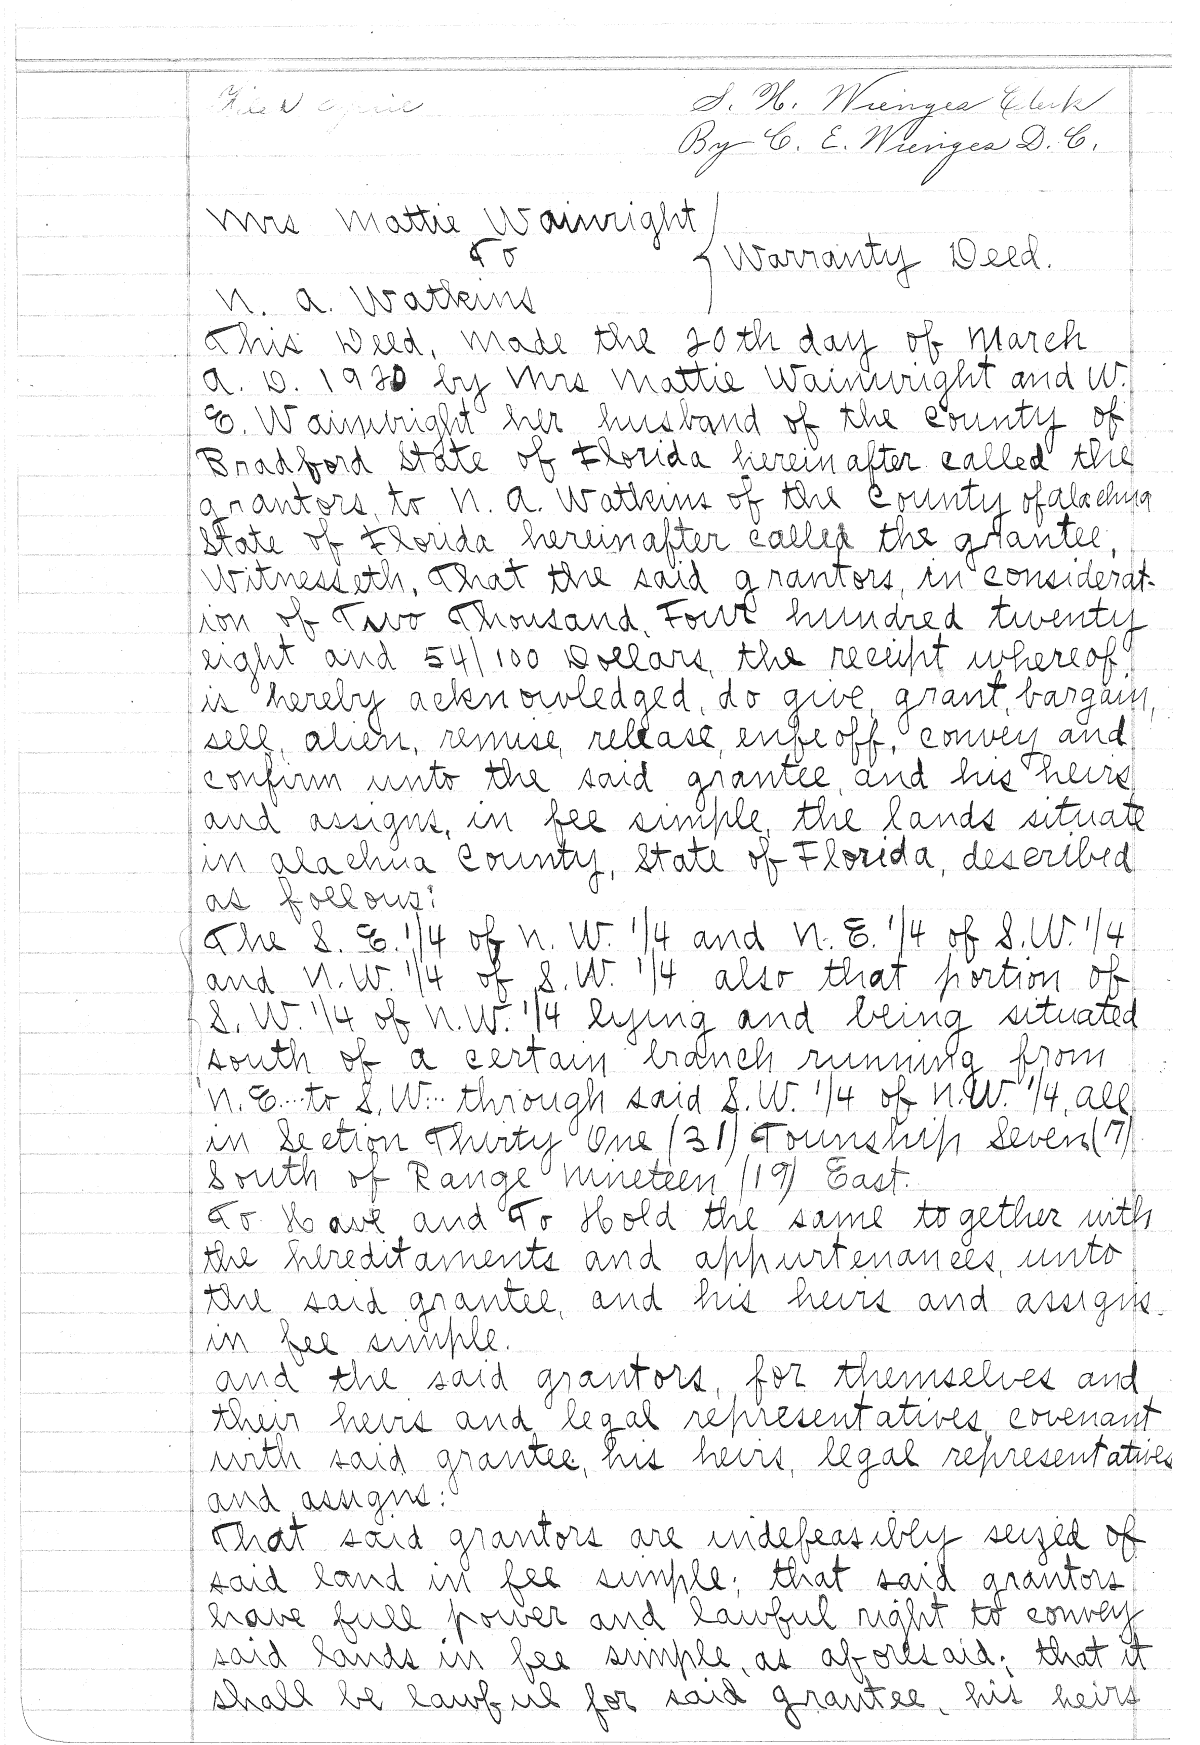 S. H. Wienges Clerk
By C. E. Wienges D. C.
Mrs Mattie Wainwright
To
Warranty Deed.
N. A. Watkins
This Deed, made the 20th day of March
A. D. 1920 by Mrs Mattie Wainwright and W.
E. Wainwright her husband of the County of
Bradford State of Florida hereinafter called the
grantors, to N. A. Watkins of the County of Alachua
State of Florida hereinafter called the grantee,
Witnesseth, That the said grantors, in considerat-
ion of Two Thousand, Four hundred twenty
eight and 54/100 Dollars, the receipt whereof
is hereby acknowledged, do give, grant, bargain,
sell, alien, remise, release, enfeoff, convey and
confirm unto the said grantee, and his heirs
and assigns, in fee simple, the lands situate
in Alachua County, State of Florida, described
as follows:
The S. E. 1/4 of N. W. 1/4 and N. E. 1/4 of S.W. 1/4
and N.W. 1/4 of S.W. 1/4 also that portion of
S. W. 1/4 of N.W. 1/4 lying and being situated
south of a certain branch running from
N. E. to S. W. through said S.W. 1/4 of N.W. 1/4, all
in Section Thirty One (31) Township Seven (7)
South of Range Nineteen (19) East.
To Have and To Hold the same together with
the hereditaments and appurtenances, unto
the said grantee, and his heirs and assigns
in fee simple.
and the said grantors, for themselves and
their heirs and legal representatives, covenant
with said grantee, his heirs, legal representatives
and assigns:
That said grantors are indefeasibly seized of
said land in fee simple; that said grantors
have full power and lawful right to convey
said lands in fee simple, as aforesaid; that it
shall be lawful for said grantee, his heirs